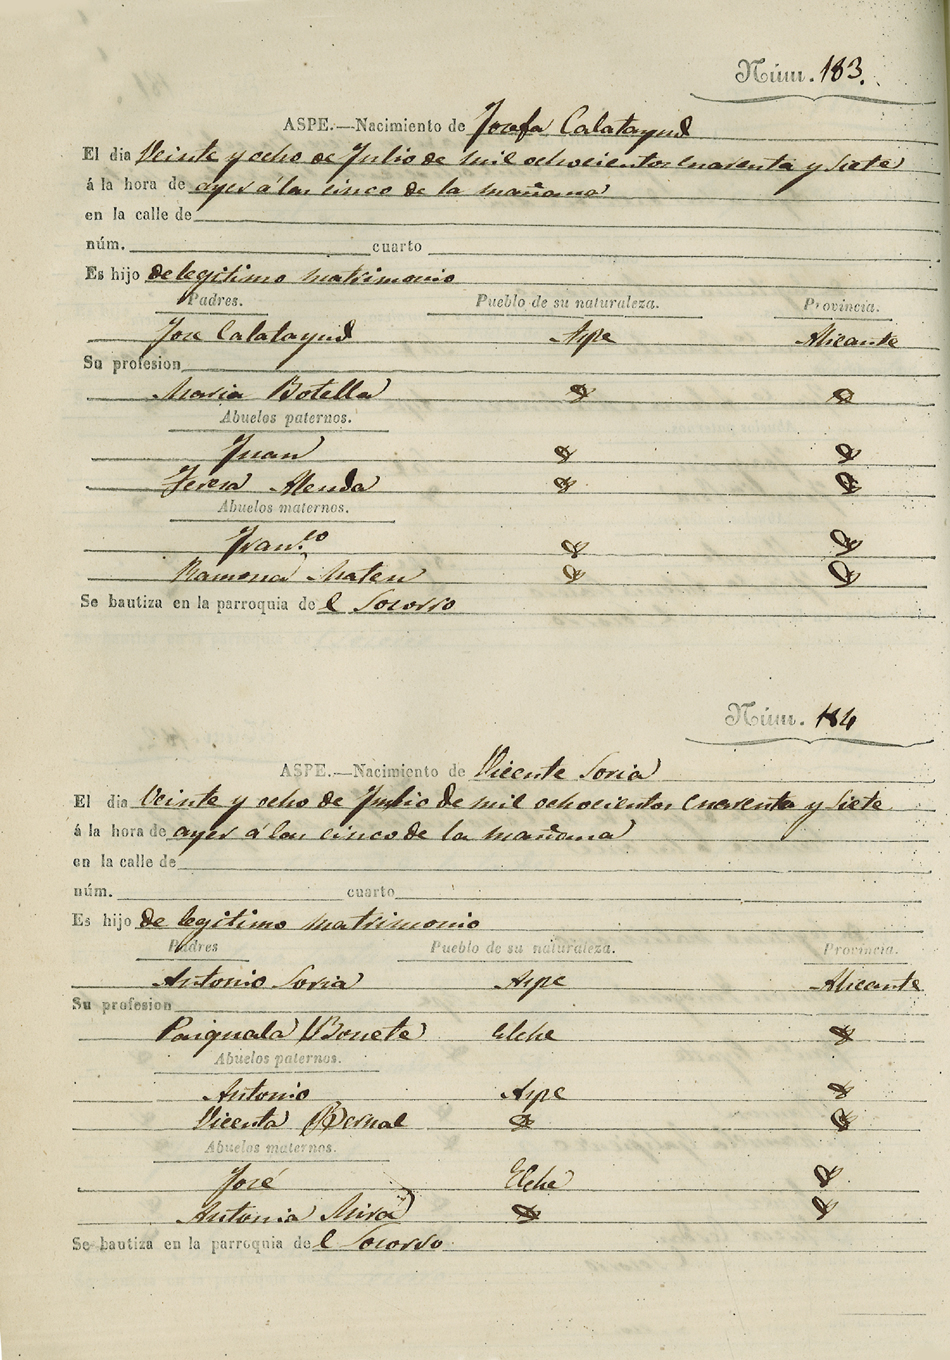 Núm. 183.
ASPE.—Nacimiento de Josefa Calatayud
El dia Veinte y ocho de Julio de mil ochocientos cuarenta y siete
á la hora de ayer á las cinco de la mañana
en la calle de
núm. cuarto
Es hijo de legitimo matrimonio
Padres. Pueblo de su naturaleza. Provincia.
Jose Calatayud Aspe Alicante
Su profesion
Maria Botella
Abuelos paternos.
Juan
Teresa Alenda
Abuelos maternos.
Fran.co
Ramona Mateu
Se bautiza en la parroquia de l Socorro
Núm. 184
ASPE.—Nacimiento de Vicente Soria
El dia Veinte y ocho de Julio de mil ochocientos cuarenta y siete
á la hora de ayer á las cinco de la mañana
en la calle de
núm. cuarto
Es hijo de legitimo matrimonio
Padres Pueblo de su naturaleza. Provincia.
Antonio Soria Aspe Alicante
Su profesion
Pasquala Bonete Elche
Abuelos paternos.
Antonio Aspe
Vicenta Bernal
Abuelos maternos.
José Elche
Antonia Mira
Se bautiza en la parroquia de l Socorro